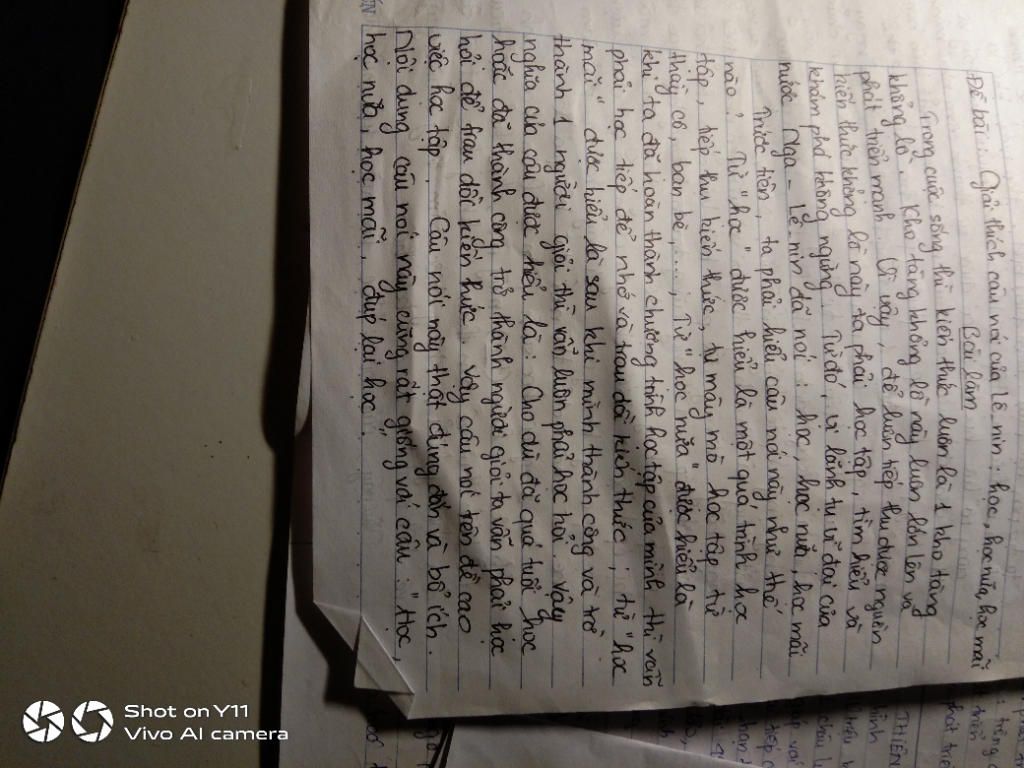 Đề bài: Giải thích câu nói của Lê nin: học, học nữa, học mãi
Bài làm
Trong cuộc sống thì kiến thức luôn là 1 kho tàng
khổng lồ. Kho tàng khổng lồ này luôn lớn lên và
phát triển mạnh. Vì vậy, để luôn tiếp thu được nguồn
kiến thức khổng lồ này ta phải học tập, tìm hiểu và
khám phá không ngừng. Từ đó, vị lãnh tụ vĩ đại của
nước Nga - Lê nin đã nói: học, học nữa, học mãi
Trước tiên, ta phải hiểu câu nói này như thế
nào? Từ "học" được hiểu là một quá trình học
tập, tiếp thu kiến thức, tự mày mò học tập từ
thầy cô, bạn bè,....; Từ "học nữa" được hiểu là
khi ta đã hoàn thành chương trình học tập của mình thì vẫn
phải học tiếp để nhớ và trau dồi kiến thức; từ "học
mãi" được hiểu là sau khi mình thành công và trở
thành 1 người giỏi thì vẫn luôn phải học hỏi. Vậy
nghĩa của câu được hiểu là: Cho dù đã quá tuổi học
hoặc đã thành công trở thành người giỏi ta vẫn phải học
hỏi để trau dồi kiến thức. Vậy câu nói trên đề cao
việc học tập. Câu nói này thật đúng đắn và bổ ích.
Nội dung câu nói này cũng rất giống với câu: "Học,
học nữa, học mãi, đúp lại học".
Shot on Y11
Vivo AI camera